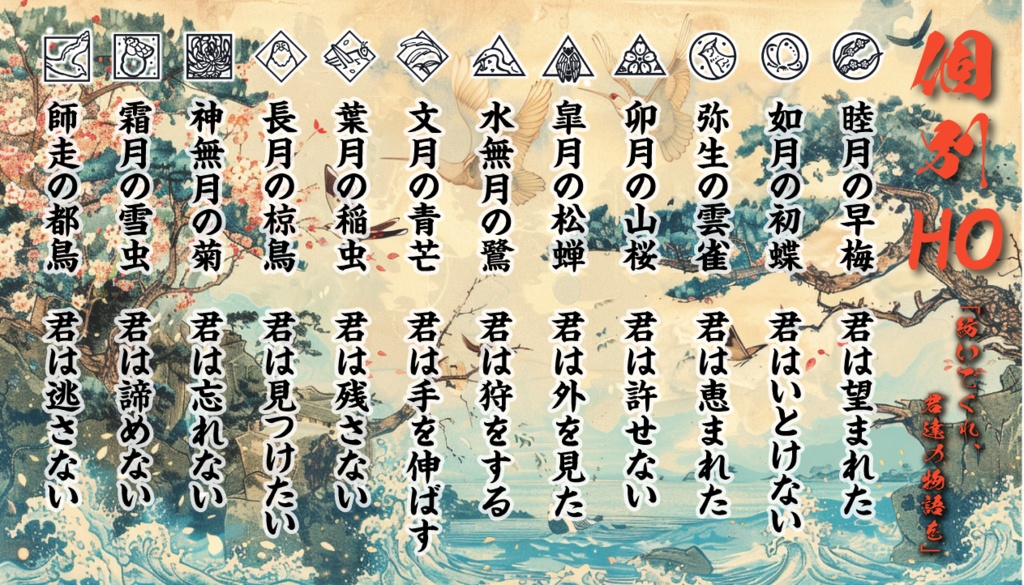 個別HO
「紡いでくれ、
君達の物語を」
睦月の早梅 君は望まれた
如月の初蝶 君はいとけない
弥生の雲雀 君は恵まれた
卯月の山桜 君は許せない
皐月の松蝉 君は外を見た
水無月の鷺 君は狩をする
文月の青芒 君は手を伸ばす
葉月の稲虫 君は残さない
長月の椋鳥 君は見つけたい
神無月の菊 君は忘れない
霜月の雪虫 君は諦めない
師走の都鳥 君は逃さない